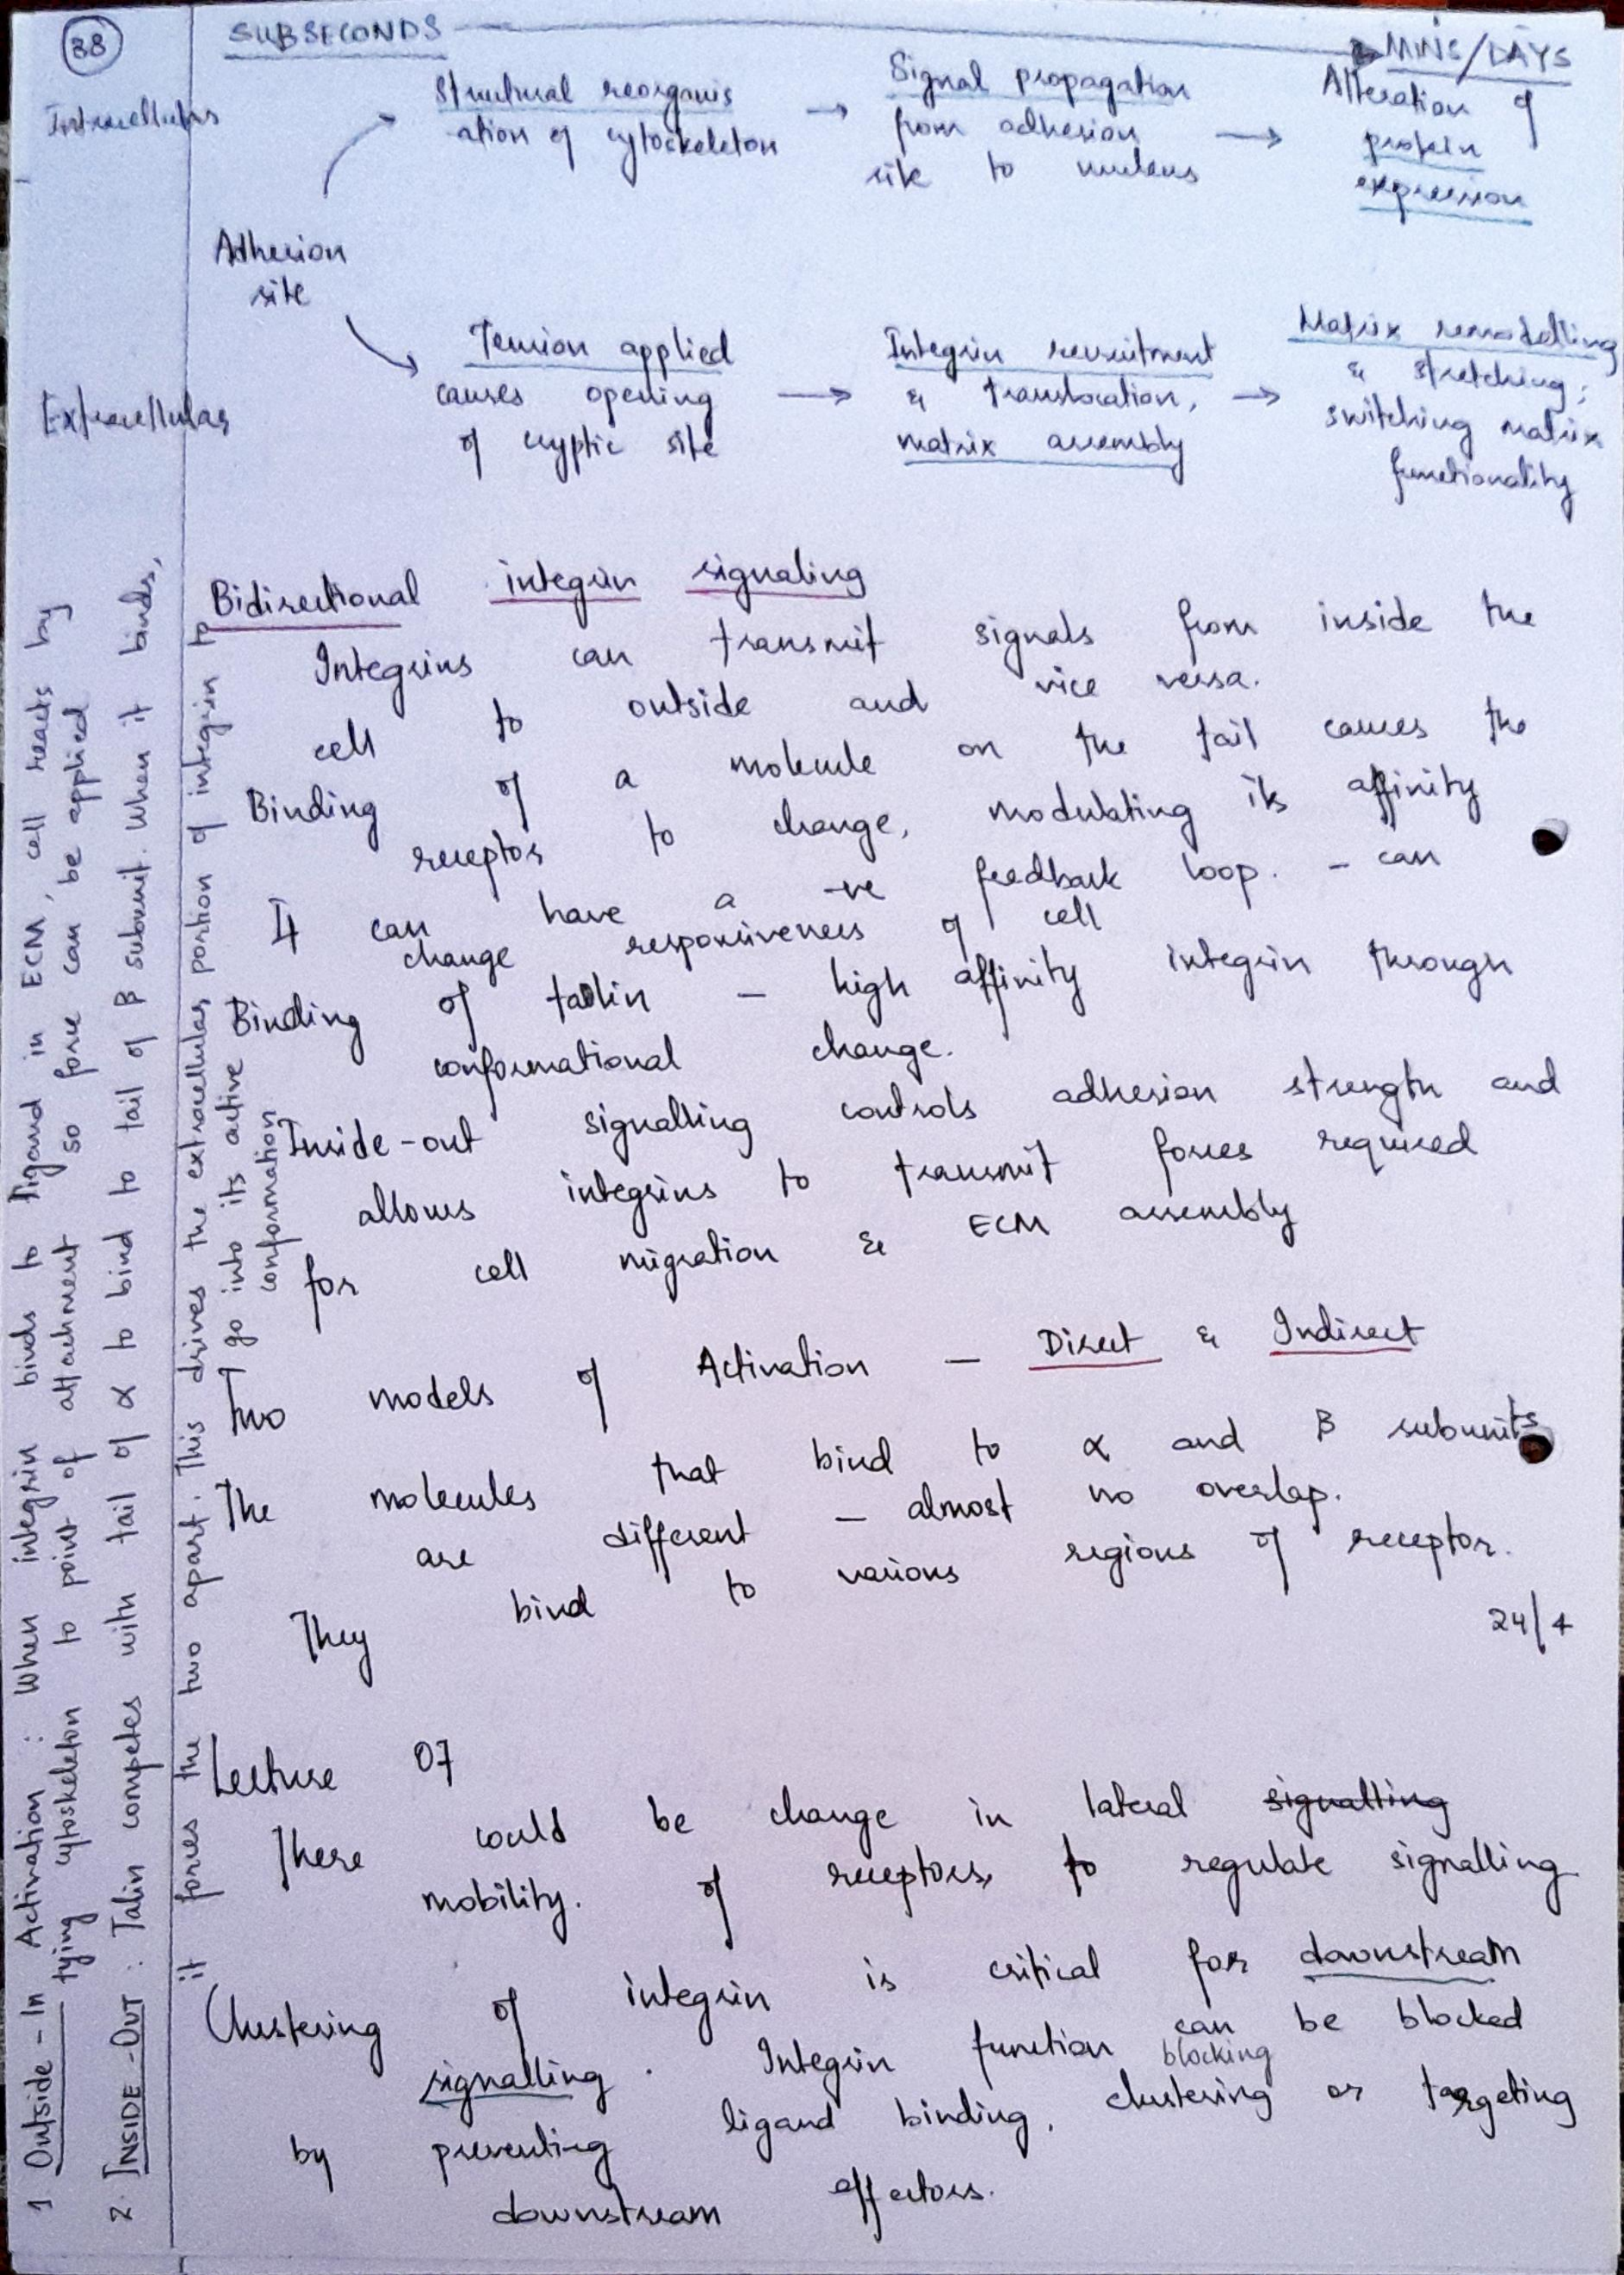 38
SUBSECONDS → MINS/DAYS
Intracellular
Structural reorganis
ation of cytoskeleton
→
Signal propagation
from adhesion
site to nucleus
→
Alteration of
protein
expression
Adhesion
site
Extracellular
Tension applied
causes opening
of cryptic site
→
Integrin recruitment
& translocation,
matrix assembly
→
Matrix remodelling
& stretching;
switching matrix
functionality
Bidirectional integrin signaling
Integrins can transmit signals from inside the
cell to outside and vice versa.
Binding of a molecule on the tail causes the
receptor to change, modulating its affinity
It can have a -ve feedback loop. - can
change responsiveness of cell
Binding of talin - high affinity integrin through
conformational change.
Inside-out signalling controls adhesion strength and
allows integrins to transmit forces required
for cell migration & ECM assembly
Two models of Activation - Direct & Indirect
The molecules that bind to α and β subunits
are different - almost no overlap.
They bind to various regions of receptor.
24/4
Lecture 07
There could be change in lateral signalling
mobility. of receptors, to regulate signalling
Clustering of integrin is critical for downstream
signalling. Integrin function can be blocked
by preventing ligand binding, blocking clustering or targeting
downstream effectors.
1 Outside-In Activation: When integrin binds to ligand in ECM, cell reacts by
tying cytoskeleton to point of attachment so force can be applied
2. INSIDE-OUT: Talin competes with tail of α to bind to tail of β subunit. When it binds,
it forces the two apart. This drives the extracellular portion of integrin to
go into its active
conformation